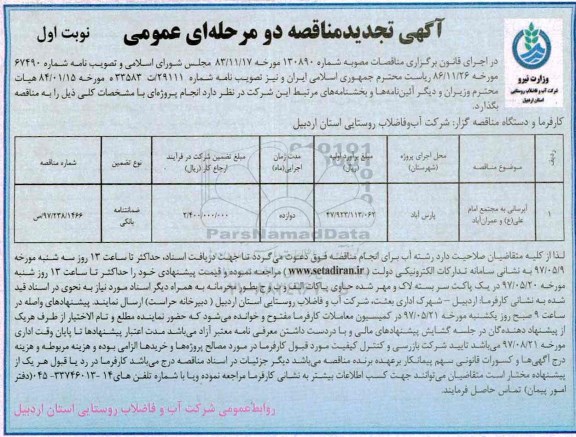 آگهی تجدیدمناقصه دو مرحله‌ای عمومی
نوبت اول
وزارت نیرو
شرکت آب و فاضلاب روستایی
استان اردبیل
در اجرای قانون برگزاری مناقصات مصوبه شماره ۱۳۰۸۹۰ مورخه ۸۳/۱۱/۱۷ مجلس شورای اسلامی و تصویب نامه شماره ۶۷۴۹۰
مورخه ۸۶/۱۱/۲۶ ریاست محترم جمهوری اسلامی ایران و نیز تصویب نامه شماره ۲۹۱۱۱/ت ۳۳۵۸۳ ه مورخه ۸۴/۰۱/۱۵ هیات
محترم وزیران و دیگر آئین‌نامه‌ها و بخشنامه‌های مرتبط این شرکت در نظر دارد انجام پروژه‌ای با مشخصات کلی ذیل را به مناقصه
بگذارد.
کارفرما و دستگاه مناقصه گزار: شرکت آب‌وفاضلاب روستایی استان اردبیل
ردیف موضوع مناقصه محل اجرای پروژه (شهرستان) مبلغ برآورد اولیه (ریال) مدت زمان اجرایی(ماه) مبلغ تضمین شرکت در فرآیند ارجاع کار (ریال) نوع تضمین شماره مناقصه
۱ آبرسانی به مجتمع امام علی(ع) و عمران‌آباد پارس آباد ۴۷/۹۲۳/۱۱۳/۰۶۲ دوازده ۲/۴۰۰/۰۰۰/۰۰۰ ضمانتنامه بانکی ۹۷/۲۳۸/۱۴۶۶/ص
ParsNamadData
لذا از کلیه متقاضیان صلاحیت دارد رشته آب برای انجام مناقصه فوق دعوت می‌گردد تا جهت دریافت اسناد، حداکثر تا ساعت ۱۳ روز سه شنبه مورخه
۹۷/۰۵/۹ به نشانی سامانه تدارکات الکترونیکی دولت (www.setadiran.ir) مراجعه نموده و قیمت پیشنهادی خود را حداکثر تا ساعت ۱۳ روز شنبه
مورخه ۹۷/۰۵/۲۰ در یک پاکت سر بسته لاک و مهر شده حاوی پاکات (الف، ب، ج) بطور محرمانه به همراه دیگر اسناد مورد نیاز به نحوی در اسناد قید
شده به نشانی کارفرما: اردبیل – شهرک اداری بعثت، شرکت آب و فاضلاب روستایی استان اردبیل (دبیرخانه حراست) ارسال نمایند. پیشنهادهای واصله در
ساعت ۹ صبح روز یکشنبه مورخه ۹۷/۰۵/۲۱ در کمیسیون معاملات کارفرما مفتوح و خوانده می‌شود که حضور نماینده مطلع و تام الاختیار از طرف هریک
از پیشنهاد دهنده‌گان در جلسه گشایش پیشنهادهای مالی و با دردست داشتن معرفی نامه معتبر آزاد می‌باشد مدت اعتبار پیشنهادها تا پایان وقت اداری
مورخه ۹۷/۰۸/۲۱ می‌باشد تایید شرکت بازرسی و کنترل کیفیت مورد قبول کارفرما در مورد مصالح پروژه‌ها و خریدها الزامی بوده و هزینه مربوطه و هزینه
درج آگهی‌ها و کسورات قانونی سهم پیمانکار برعهده برنده مناقصه می‌باشد دیگر جزئیات در اسناد مناقصه درج می‌باشد کارفرما در رد یا قبول هر یک از
پیشنهاده مختار است متقاضیان می‌توانند جهت کسب اطلاعات بیشتر به نشانی کارفرما مراجعه نموده ویا با شماره تلفن های۱۴-۰۴۵-۳۳۷۴۶۰۱۳(دفتر
امور پیمان) تماس حاصل فرمایند.
روابط‌عمومی شرکت آب و فاضلاب روستایی استان اردبیل